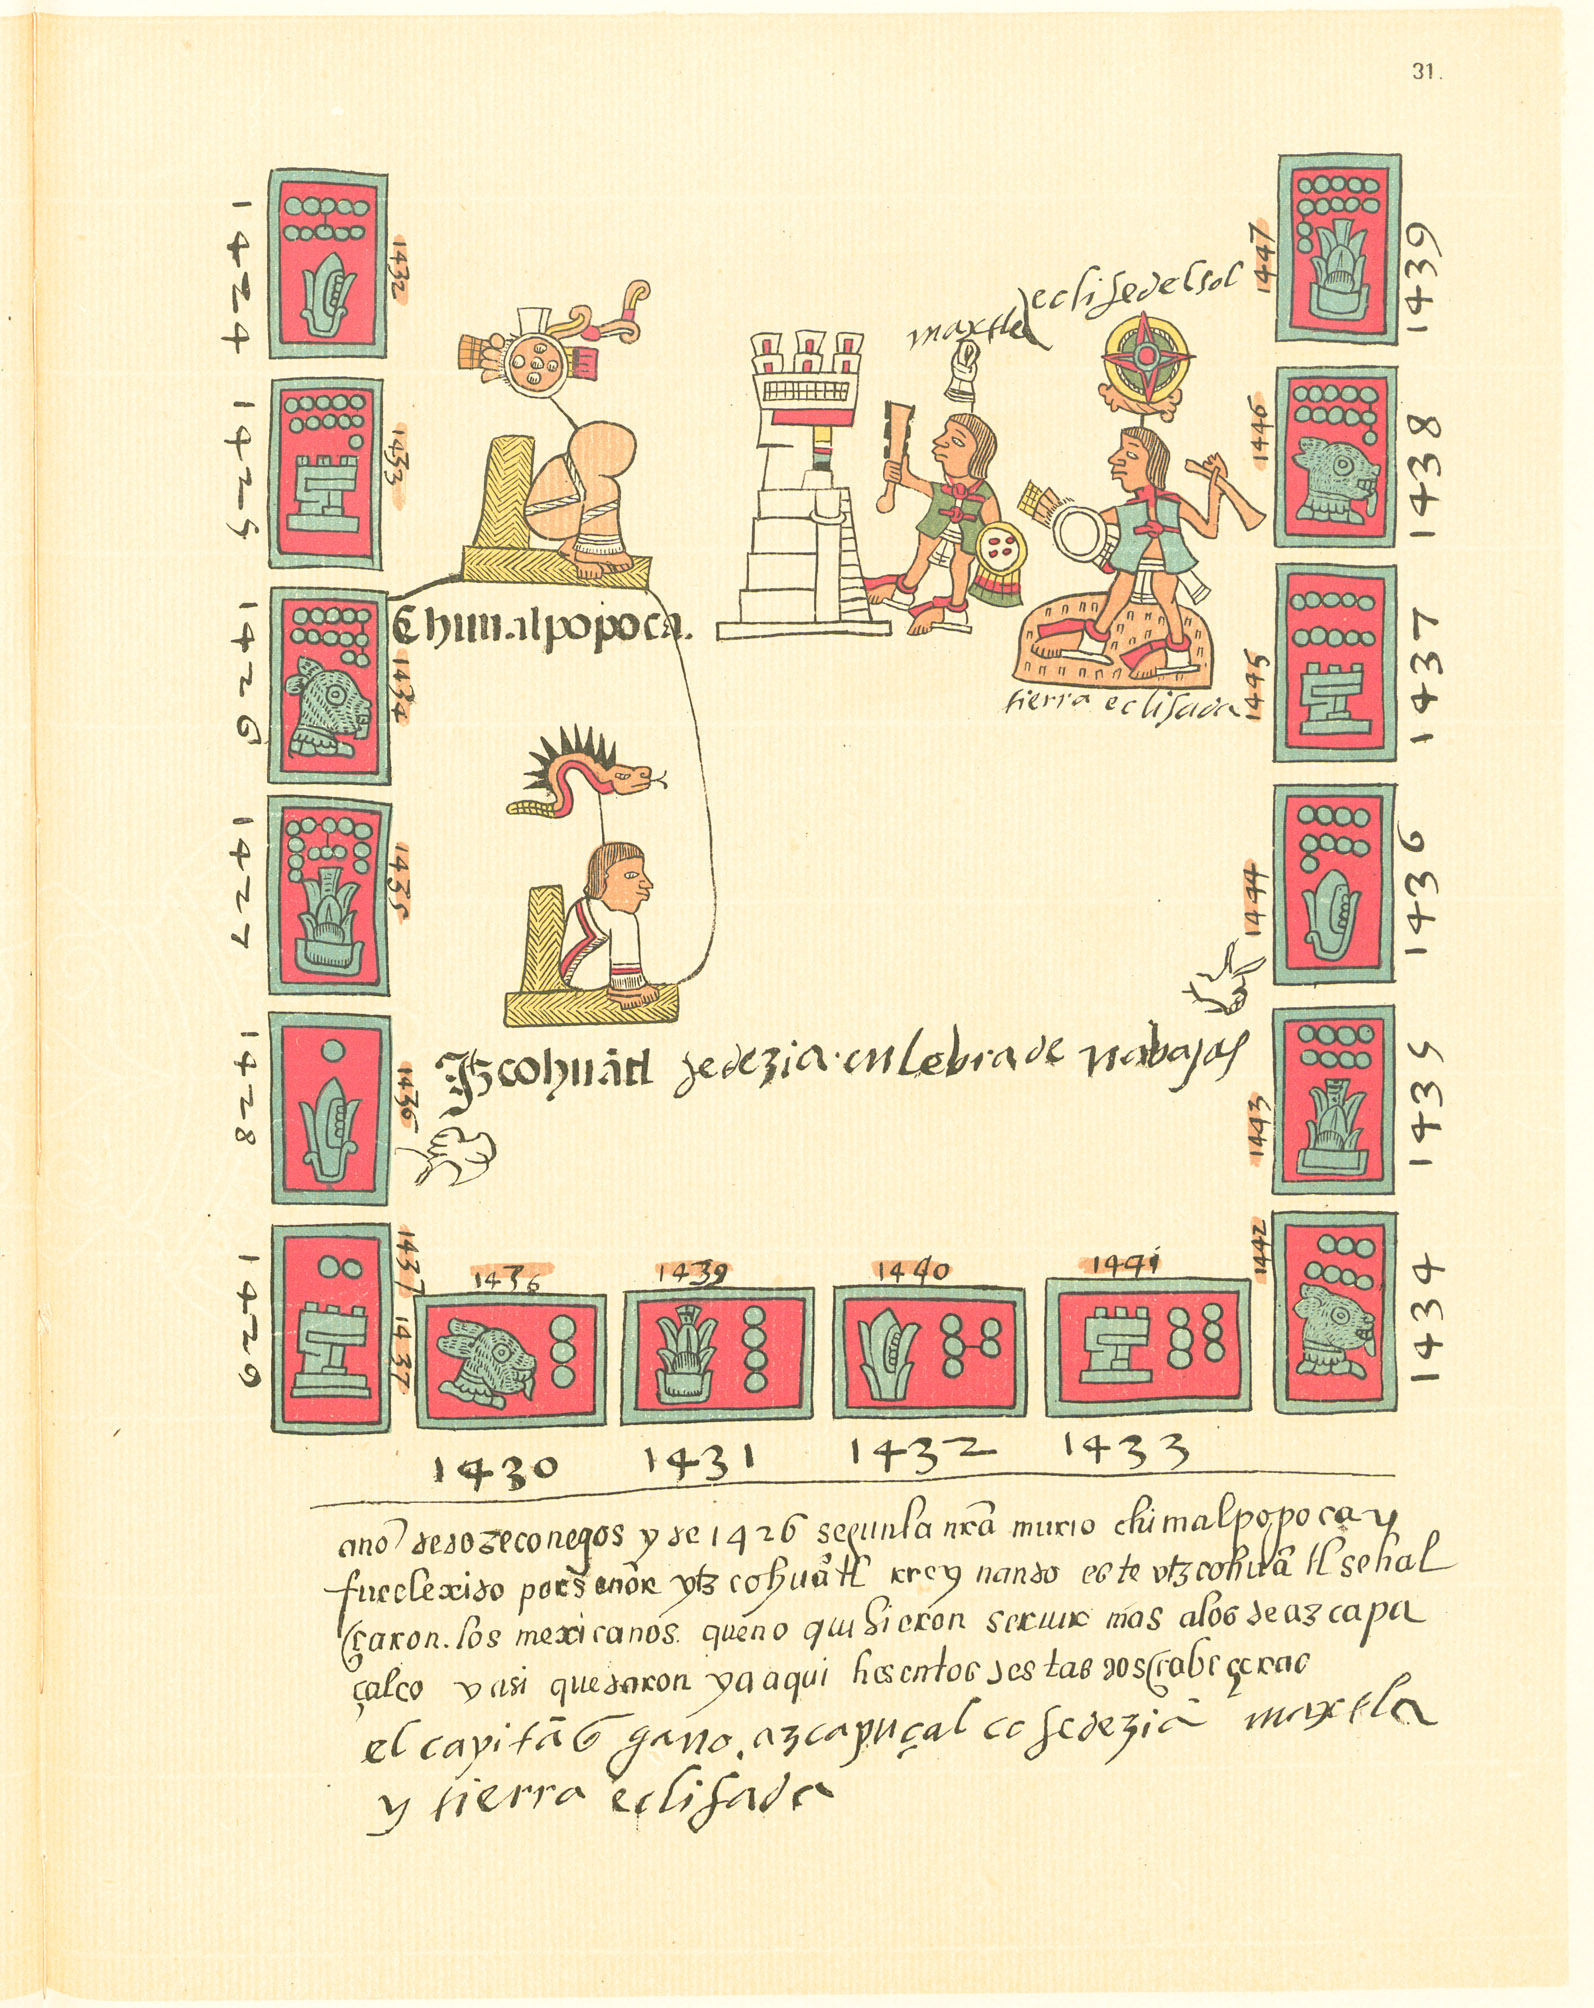 31.
1424
1432
1425
1433
1426
1434
1427
1435
1428
1436
1429
1437
1437
1430
1436
1431
1439
1432
1440
1433
1441
1434
1442
1435
1443
1436
1444
1437
1445
1438
1446
1439
1447
maxtla
eclisedelsol
Chimalpopoca.
tierra eclisada
Itzcohuātl sedezia culebra de nabajas
ano de doze conegos y de 1426 segun la nrā murio chimalpopoca y
fue elexido por señor ytzcohuatl reynando este ytzcohuātl se hal
çaron. los mexicanos. que no quisieron seruir mas a los de azcapa
çalco y asi quedaron ya aqui hesentos destas dos cabeçeras
el capitā G gano. azcapuçalco sedezia maxtla
y tierra eclisada